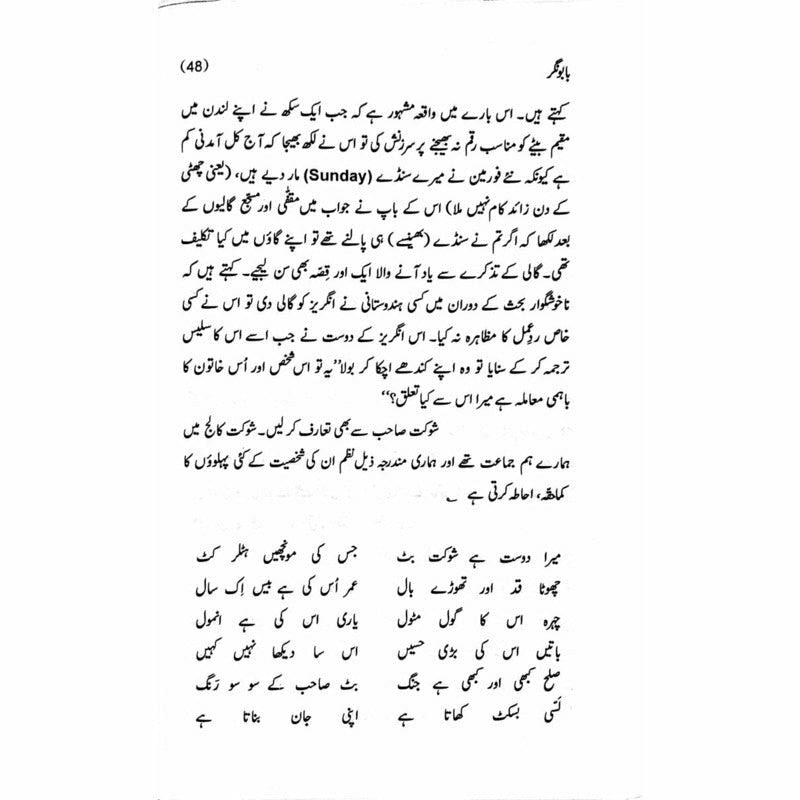 بابو نگر (48)
کہتے ہیں۔ اس بارے میں واقعہ مشہور ہے کہ جب ایک سکھ نے اپنے لندن میں
مقیم بیٹے کو مناسب رقم نہ بھیجنے پر سرزنش کی تو اس نے لکھ بھیجا کہ آج کل آمدنی کم
ہے کیونکہ نئے فورمین نے میرے سنڈے (Sunday) مار دیے ہیں، (یعنی چھٹی
کے دن زائد کام نہیں ملا) اس کے باپ نے جواب میں مقفّٰی اور مسجّع گالیوں کے
بعد لکھا کہ اگر تم نے سنڈے (بھینسے) ہی پالنے تھے تو اپنے گاؤں میں کیا تکلیف
تھی۔ گالی کے تذکرے سے یاد آنے والا ایک اور قِصّہ بھی سن لیجیے۔ کہتے ہیں کہ
ناخوشگوار بحث کے دوران میں کسی ہندوستانی نے انگریز کو گالی دی تو اس نے کسی
خاص ردِعمل کا مظاہرہ نہ کیا۔ اس انگریز کے دوست نے جب اسے اس کا سلیس
ترجمہ کر کے سنایا تو وہ اپنے کندھے اچکا کر بولا ”یہ تو اس شخص اور اُس خاتون کا
باہمی معاملہ ہے میرا اس سے کیا تعلق؟“
شوکت صاحب سے بھی تعارف کر لیں۔ شوکت کالج میں
ہمارے ہم جماعت تھے اور ہماری مندرجہ ذیل نظم ان کی شخصیت کے کئی پہلوؤں کا
کماحقّہ، احاطہ کرتی ہے ؎
میرا دوست ہے شوکت بٹ جس کی مونچھیں ہٹلر کٹ
چھوٹا قد اور تھوڑے بال عمر اُس کی ہے بیس اِک سال
چہرہ اس کا گول مٹول یاری اس کی ہے انمول
باتیں اس کی بڑی حسیں اس سا دیکھا نہیں کہیں
صلح کبھی اور کبھی ہے جنگ بٹ صاحب کے سو سو رَنگ
لَسّی بسکٹ کھاتا ہے اپنی جان بناتا ہے